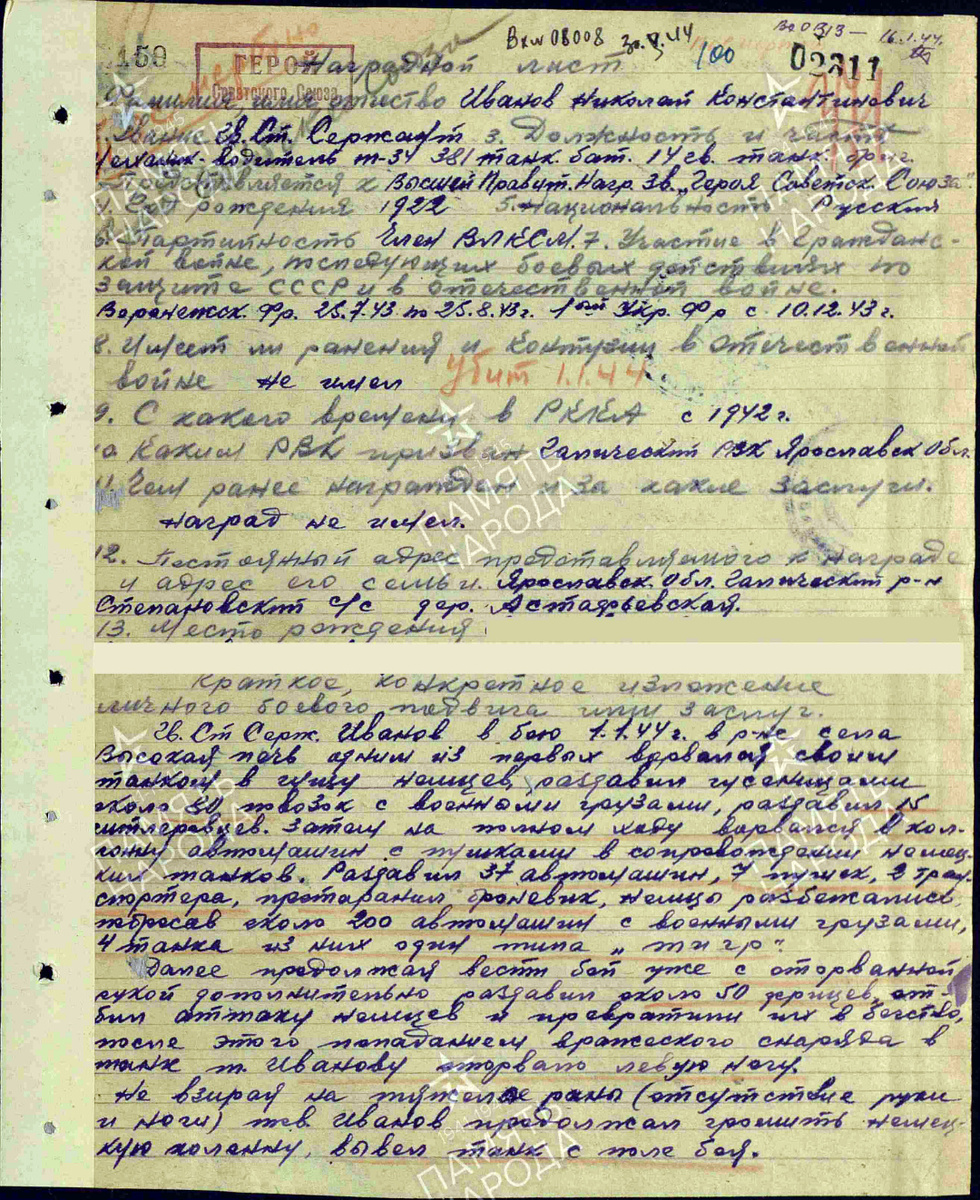 Вх№ 08008 30.V.44
16.1.44.
159 100 02811
ГЕРОЙ
Советского Союза
Наградной лист
Фамилия, имя, отчество Иванов Николай Константинович
2. Звание Гв. Ст. Сержант 3. Должность и часть
Механик-водитель т-34 381 танк. бат. 14 гв. танк. бриг.
Представляется к Высшей Правит. Нагр. Зв. „Героя Советск. Союза"
4. Год рождения 1922 5. Национальность Русский
6. Партийность Член ВЛКСМ. 7. Участие в Гражданс-
кой войне, последующих боевых действиях по
защите СССР и в отечественной войне.
Воронежск. Фр. 25.7.43 по 25.8.43 г. 1ый Укр. Фр с 10.12.43 г.
8. Имеет ли ранения и контузии в отечественной
войне не имел Убит 1.1.44
9. С какого времени в РККА с 1942 г.
10 Каким РВК призван Галический РВК Ярославск Обл.
11. Чем ранее награжден и за какие заслуги.
наград не имел.
12. Постоянный адрес представляемого к награде
и адрес его семьи. Ярославск. Обл. Галический р-н
Степановский с/с дер. Астафьевская.
13. Место рождения
Краткое, конкретное изложение
личного боевого подвига или заслуг.
Гв. Ст Серж. Иванов в бою 1.1.44 г. в р-не села
Высокая печь одним из первых ворвался своим
танком в гущу немцев, раздавил гусеницами
около 80 повозок с военными грузами, раздавил 15
гитлеровцев. Затем на полном ходу ворвался в кол-
лонну автомашин с пушками в сопровождении немец-
ких танков. Раздавил 37 автомашин, 7 пушек, 2 тран-
спортера, протаранил броневик, немцы разбежались,
побросав около 200 автомашин с военными грузами,
4 танка из них один типа „тигр".
Далее продолжая вести бой уже с оторванной
рукой дополнительно раздавил около 50 фрицев, от-
бил аттаку немцев и превратил их в бегство,
после этого попаданием вражеского снаряда в
танк т. Иванову оторвало левую ногу.
Не взирая на тяжелое раны (отсутствие руки
и ноги) тов Иванов продолжал громить немец-
кую коленну, вывел танк с поле боя.
ПАМЯТЬ
НАРОДА